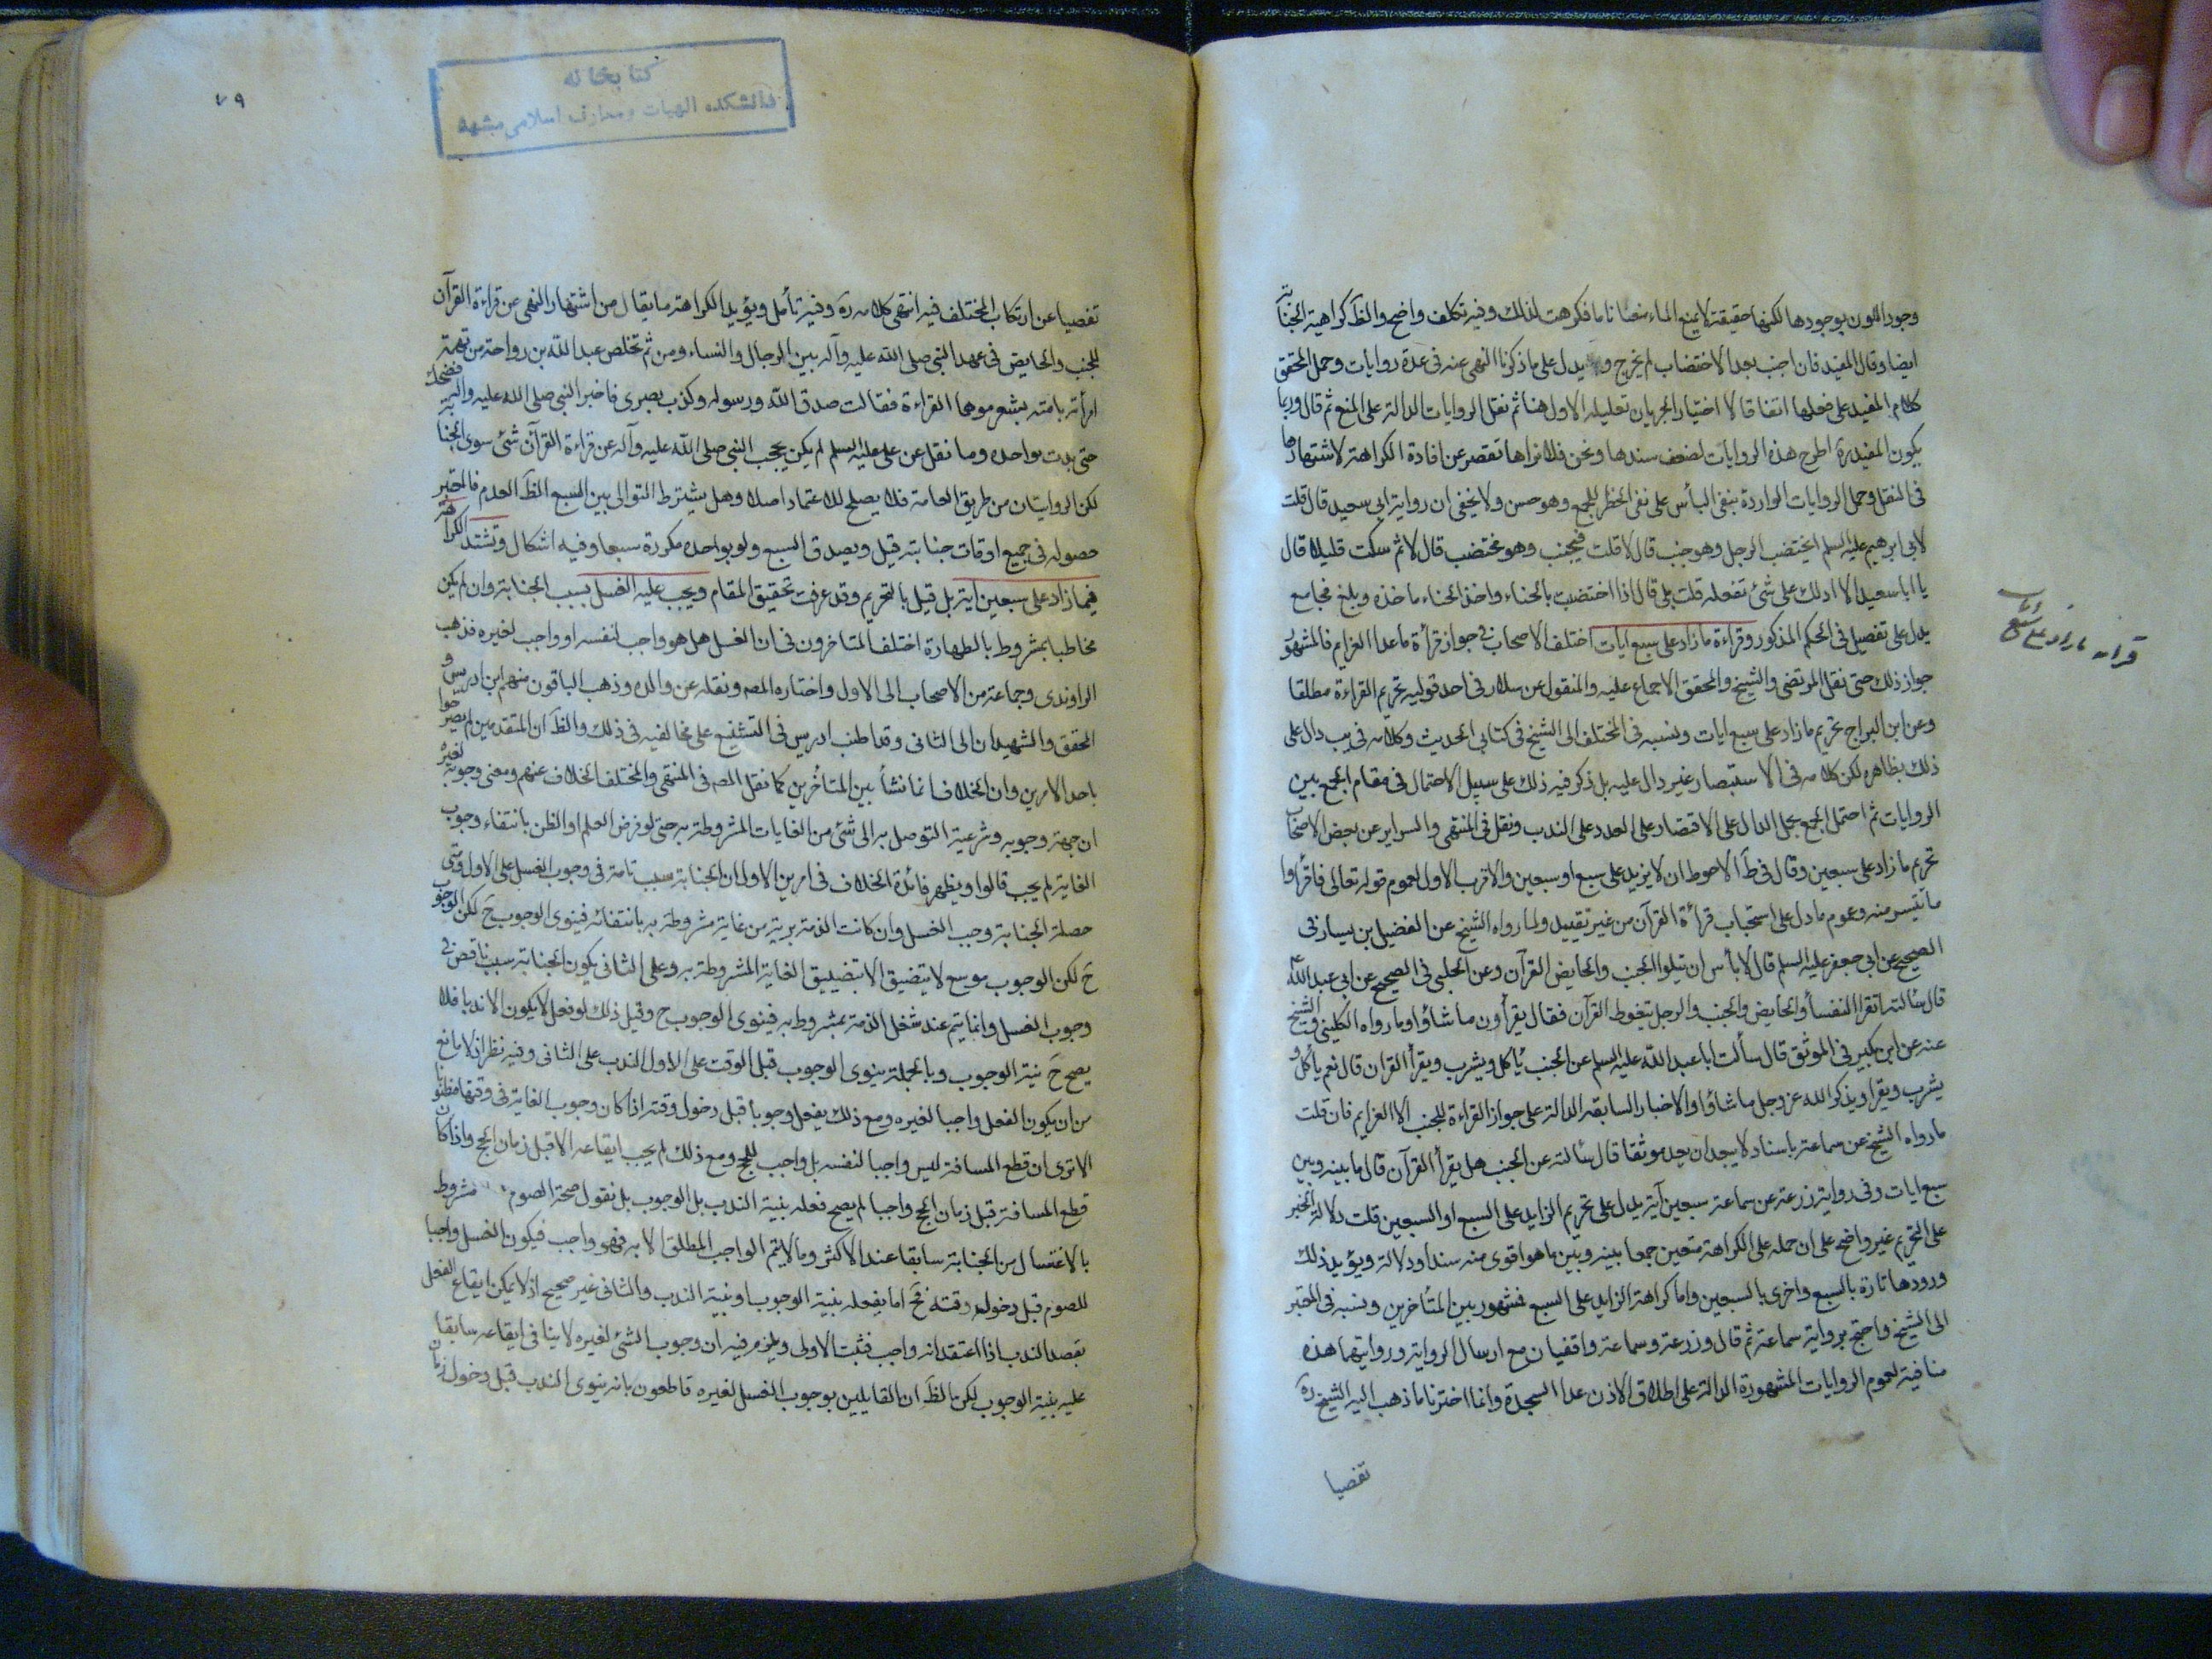 وجود اللون بوجودها لكنها حقيقة لا يمنع الماء منعا تاما فكرهت لذلك وفيه تكلف واضح والظ كراهية الجنابة
ايضا وقال المفيد فان اجنب بعد الاختضاب لم يخرج و يدل على ما ذكرنا النهى عنه فى عدة روايات وحمل المحقق
كلام المفيد على فعلها اتفاقا لا اختيارا لجريان تعليله الاول هنا ثم نقل الروايات الدالة على المنع ثم قال وربما
يكون المفيد ره اطرح هذه الروايات لضعف سندها ونحن فلا نراها تقصر عن افادة الكراهة لاشتهارها
فى النقل وحمل الروايات الواردة بنفى البأس على نفى الحظر للجمع وهو حسن ولا يخفى ان رواية ابى سعيد قال قلت
لابى ابرهيم عليه السلم ايختضب الرجل وهو جنب قال لا قلت فيجنب وهو مختضب قال لا ثم سكت قليلا قال
يا ابا سعيد الا ادلك على شئ تفعله قلت بلى قال اذا اختضبت بالحناء واخذ الحناء ماخذه وبلغ فجامع
يدل على تفصيل فى الحكم المذكور وقراءة ما زاد على سبع ايات اختلف الاصحاب فى جواز قرأة ما عدا العزايم فالمشهور
جواز ذلك حتى نقل المرتضى والشيخ والمحقق الاجماع عليه والمنقول عن سلار فى احد قوليه تحريم القراءة مطلقا
وعن ابن البراج تحريم ما زاد على سبع ايات ونسبه فى المختلف الى الشيخ فى كتابي الحديث وكلامه فى يب دال على
ذلك بظاهره لكن كلامه فى الاستبصار غير دال عليه بل ذكر فيه ذلك على سبيل الاحتمال فى مقام الجمع بين
الروايات ثم احتمل الجمع بحمل الدال على الاقتصار على العدد على الندب ونقل فى المنتهى والسراير عن بعض الاصحاب
تحريم ما زاد على سبعين وقال فى ط الاحوط ان لا يزيد على سبع او سبعين والاقرب الاول لعموم قوله تعالى فاقرأوا
ما تيسر منه وعموم ما دل على استحباب قرأة القرآن من غير تقييد ولما رواه الشيخ عن الفضيل بن يسار فى
الصحيح عن ابى جعفر عليه السلم قال لا بأس ان تتلوا الجنب والحايض القرآن وعن الحلبى فى الصحيح عن ابى عبد الله ع
قال سألته اتقرا النفسأ والحايض والجنب والرجل يتغوط القرآن فقال يقرأون ما شاؤا وما رواه الكلينى والشيخ
عنه عن ابن بكير فى الموثق قال سألت ابا عبد الله عليه السلم عن الجنب يأكل ويشرب ويقرأ القران قال نعم يأكل و
يشرب ويقرا ويذكر الله عز وجل ما شاؤا والاخبار السابقه الدالة على جواز القراءة للجنب الا العزايم فان قلت
ما رواه الشيخ عن سماعة باسناد لا يبعد ان يعد موثقا قال سألته عن الجنب هل يقرأ القرآن قال ما بينه وبين
سبع ايات وفى رواية زرعة عن سماعة سبعين آية يدل على تحريم الزايد على السبع او السبعين قلت دلالة الخبر
على التحريم غير واضح على ان حمله على الكراهة متعين جمعا بينه وبين ما هو اقوى منه سندا ودلالة ويؤيد ذلك
ورودها تارة بالسبع واخرى بالسبعين واما كراهة الزايد على السبع فمشهور بين المتأخرين ونسبه فى المعتبر
الى الشيخ واحتج برواية سماعة ثم قال وزرعة وسماعة واقفيان مع ارسال الرواية وروايتهما هذه
منافية لعموم الروايات المشهورة الدالة على اطلاق الاذن عدا السجدة وانما اخترنا ما ذهب اليه الشيخ ره
تفصيا
قراءة ما زاد على سبع ايات
٧٩
كتابخانه
دانشكده الهيات ومعارف اسلامي مشهد
تفصيا عن ارتكاب المختلف فيه انتهى كلامه ره وفيه تأمل ويؤيد الكراهة ما يقال من اشتهار النهى عن قراءة القرآن
للجنب والحايض فى عهد النبى صلى الله عليه وآله بين الرجال والنساء ومن ثم تخلص عبد الله بن رواحة من تهمة
امرأته بامته بشعر موهما القراءة فقالت صدق الله ورسوله وكذب بصرى فاخبر النبى صلى الله عليه واله فضحك
حتى بدت نواجده وما نقل عن على عليه السلم لم يكن يحجب النبى صلى الله عليه وآله عن قراءة القرآن شئ سوى الجنابة
لكن الروايتان من طريق العامة فلا يصلح للاعتماد اصلا وهل يشترط التوالى بين السبع الظ العدم فالمعتبر
حصوله فى جميع اوقات جنابته قيل ويصدق السبع ولو بواحده مكررة سبعا وفيه اشكال وتشتد الكراهة
فيما زاد على سبعين اية بل قيل بالتحريم وقد عرفت تحقيق المقام ويجب عليه الغسل بسبب الجنابة وان لم يكن
مخاطبا بمشروط بالطهارة اختلف المتاخرون فى ان الغسل هل هو واجب لنفسه او واجب لغيره فذهب
الراوندى وجماعة من الاصحاب الى الاول واختاره المصه ونقله عن والده وذهب الباقون منهم ابن ادريس و
المحقق والشهيدان الى الثانى وقد اطنب ادريس فى التشنيع على مخالفيه فى ذلك والظ ان المتقدمين لم يصرحوا
باحد الامرين وان الخلاف انما نشأ بين المتأخرين كما نقل المصه فى المنتهى والمختلف الخلاف عنهم ومعنى وجوبه لغيره
ان جهة وجوبه وشرعية التوصل به الى شئ من الغايات المشروطة به حتى لو فرض العلم او الظن بانتفاء وجوب
الغاية لم يجب قالوا ويظهر فائدة الخلاف فى امرين الاول ان الجنابة سبب تامة فى وجوب الغسل على الاول ومتى
حصلت الجنابة وجب الغسل وان كانت الذمة برية من غاية مشروطة به بانتفائه فينوى الوجوب ح لكن الوجوب
ح لكن الوجوب موسع لا يتضيق الا بتضييق الغاية المشروطة به وعلى الثانى يكون الجنابة سببا ناقص فى
وجوب الغسل وانما يتم عند شغل الذمة بمشروط به فينوى الوجوب ح وقبل ذلك لو فعل لا يكون الا ندبا فلا
يصح ح نية الوجوب وبالجملة ينوى الوجوب قبل الوقت على الاول الندب على الثانى وفيه نظر اذ لا مانع
من ان يكون الفعل واجبا لغيره ومع ذلك يفعل وجوبا قبل دخول وقته اذا كان وجوب الغاية فى وقتها مظنونا
الا ترى ان قطع المسافة ليس واجبا لنفسه بل واجب للحج ومع ذلك لم يجب ايقاعه الا قبل زمان الحج واذا كان
قطع المسافة قبل زمان الحج واجبا لم يصح فعله بنية الندب بل الوجوب بل نقول صحة الصوم مشروط
بالاغتسال من الجنابة سابقا عند الاكثر وما لا يتم الواجب المطلق الا به فهو واجب فيكون الغسل واجبا
للصوم قبل دخوله وقته فح اما يفعله بنية الوجوب او نية الندب والثانى غير صحيح اذ لا يمكن ايقاع الفعل
بقصد الندب اذا اعتقد انه واجب فثبت الاولى ويلزم فيه ان وجوب الشئ لغيره لا ينافى ايقاعه سابقا
عليه بنية الوجوب لكن الظ ان القايلين بوجوب الغسل لغيره قاطعون بانه ينوى الندب قبل دخول زمان